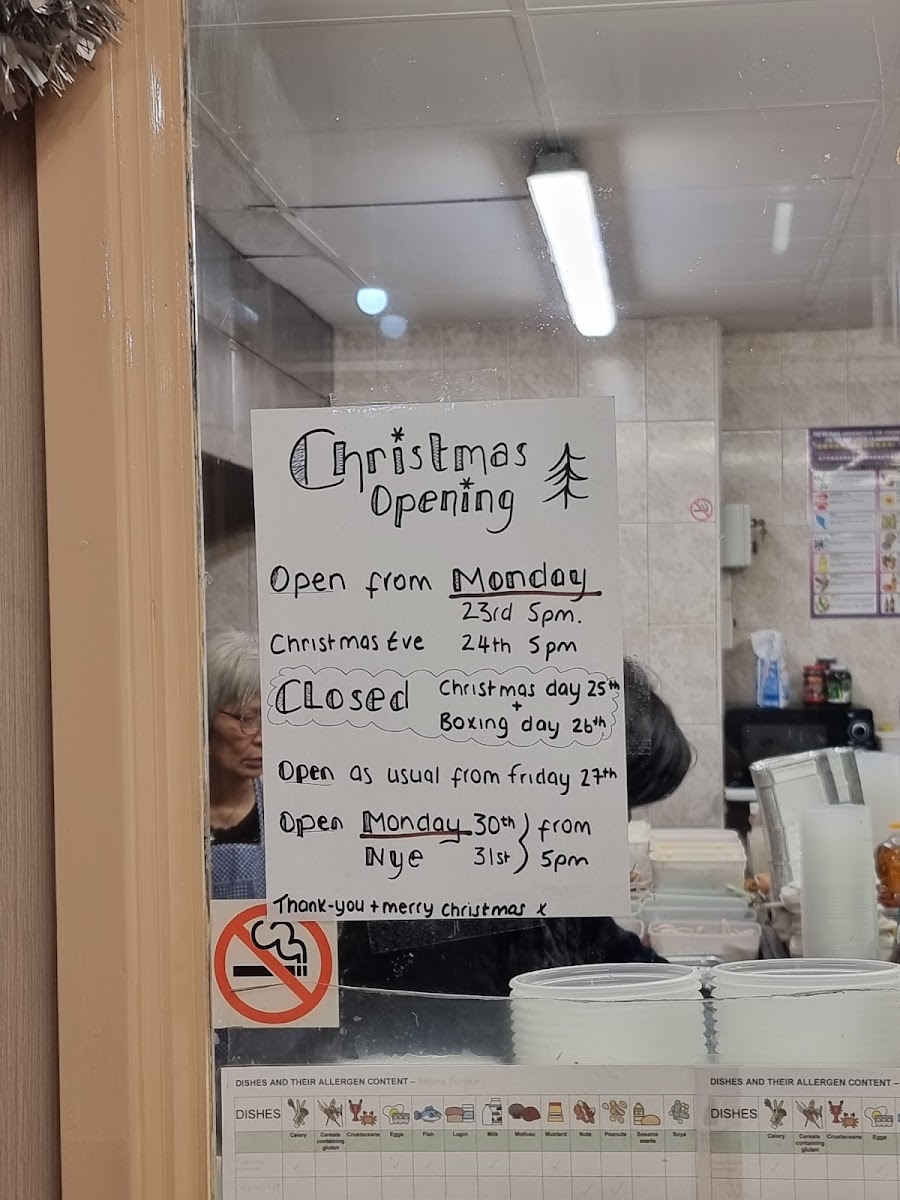 Christmas
Opening
Open from Monday
23rd 5pm.
Christmas Eve 24th 5pm
CLosed Christmas day 25th
+
Boxing day 26th
Open as usual from friday 27th
Open Monday 30th } from
Nye 31st } 5pm
Thank-you + merry christmas x
DISHES AND THEIR ALLERGEN CONTENT –
DISHES AND THEIR ALLERGEN CONTENT –
DISHES
Celery
Cereals containing gluten
Crustaceans
Eggs
Fish
Lupin
Milk
Mollusc
Mustard
Nuts
Peanuts
Sesame seeds
Soya
DISHES
Celery
Cereals containing gluten
Crustaceans
Eggs